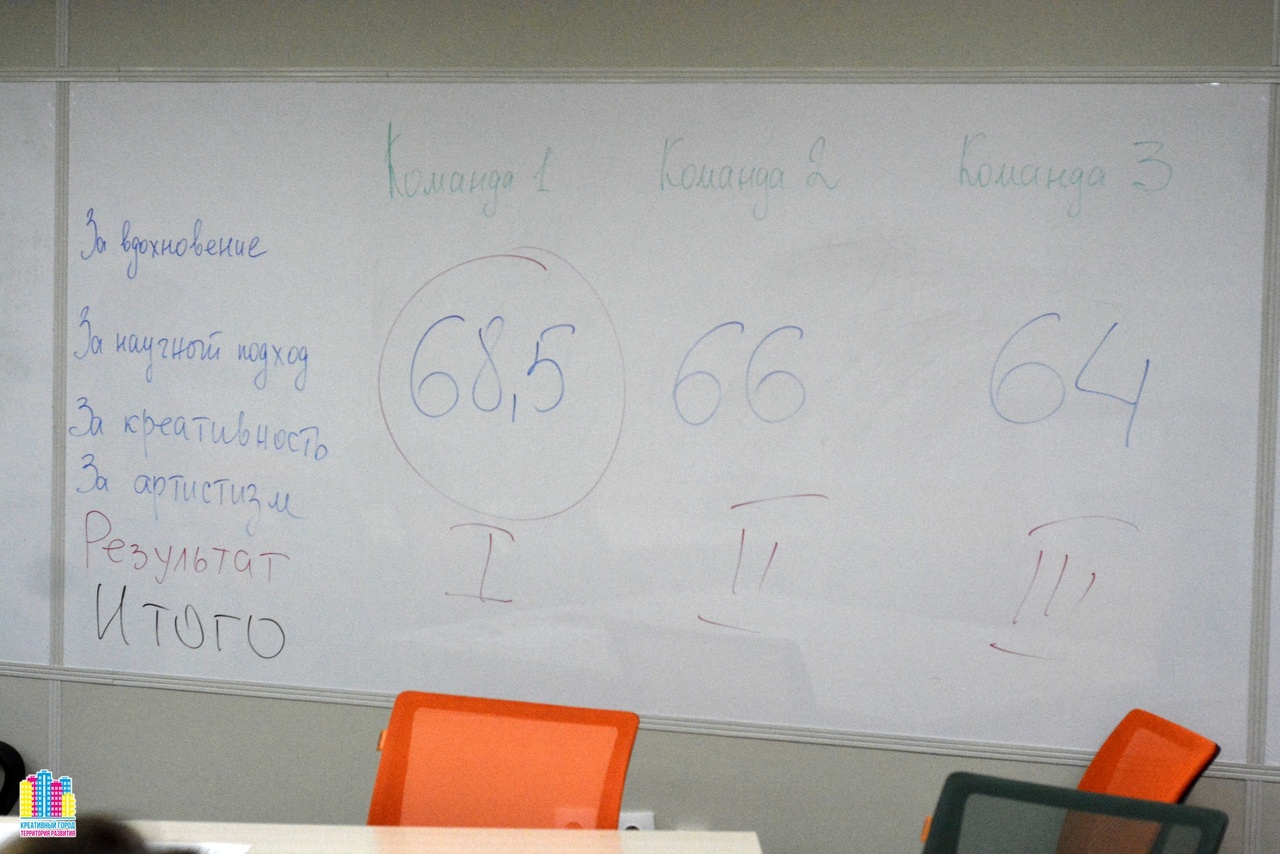 Команда 1 Команда 2 Команда 3
За вдохновение
За научный подход
68,5 66 64
За креативность
За артистизм
Результат I II III
Итого
КРЕАТИВНЫЙ ГОРОД
ТЕРРИТОРИЯ РАЗВИТИЯ